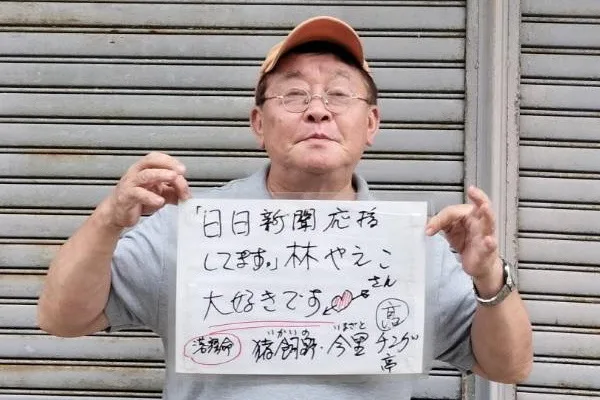 「日日新聞応援
してます。」林やえこさん
大好きです
いかいの いまざと
猪飼野・今里
高